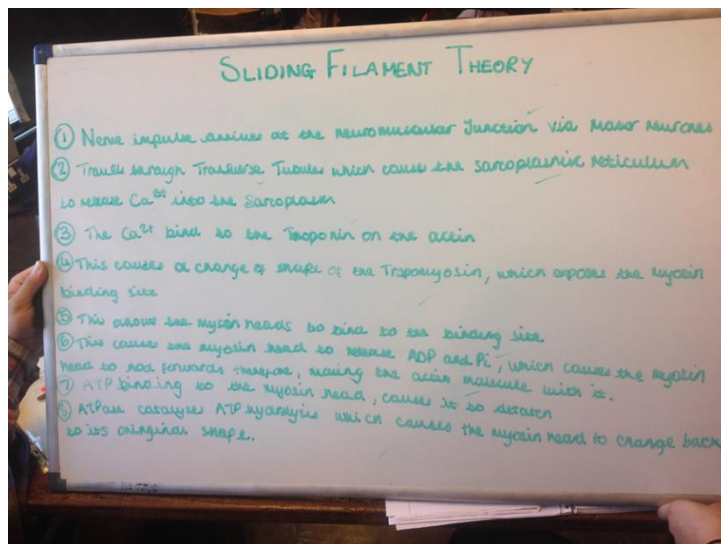 SLIDING FILAMENT THEORY
① Nerve impulse arrives at the neuromuscular Junction via Motor neurones
② Travels through Transverse Tubules which cause the sarcoplasmic reticulum
to release Ca²⁺ into the Sarcoplasm
③ The Ca²⁺ bind to the Troponin on the actin
④ This causes a change of shape of the Tropomyosin, which exposes the myosin
binding site
⑤ This allows the myosin heads to bind to the binding site
⑥ This causes the myosin head to release ADP and Pi, which causes the myosin
head to nod forwards therefore, moving the actin molecule with it.
⑦ ATP binding to the myosin head, causes it to detach
⑧ ATPase catalyses ATP hydrolysis which causes the myosin head to change back
to its original shape.